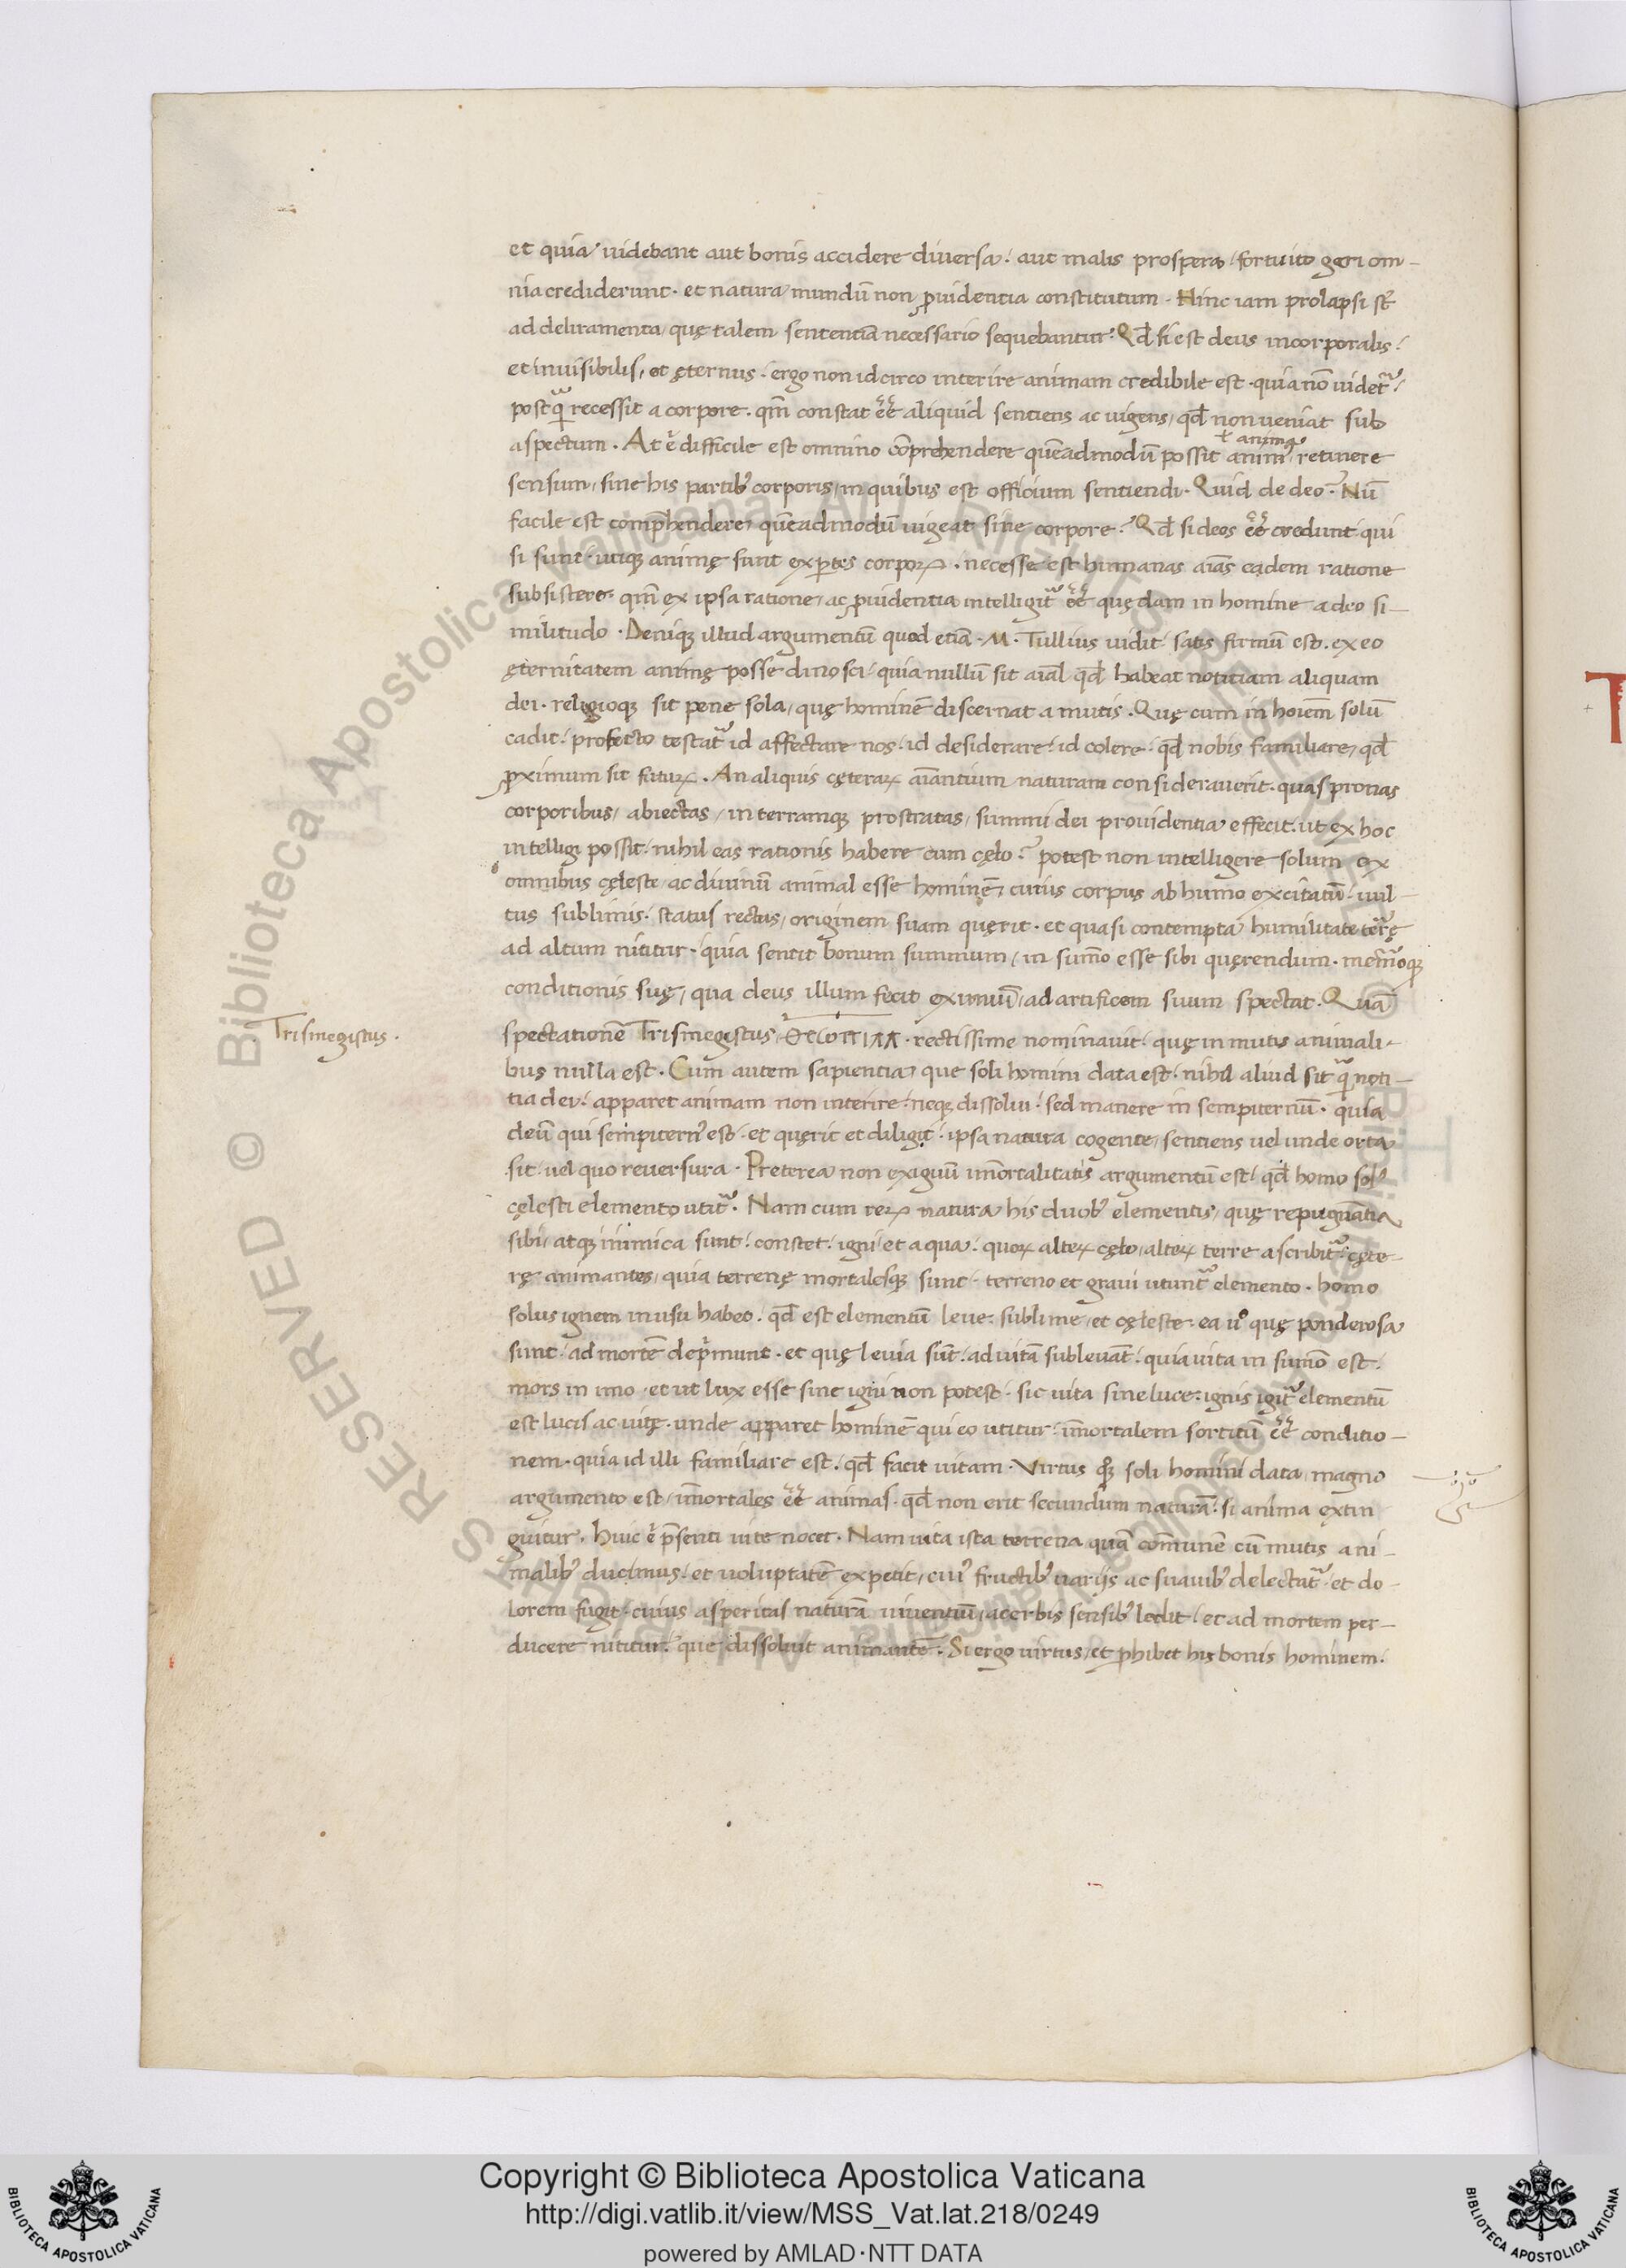 et quia uidebant aut bonis accidere diuersa: aut malis prospera, fortuito geri om-
nia crediderunt. et natura mundũ non ꝓuidentia constitutum. Hinc iam prolapsi st̃
ad deliramenta, quę talem sententiã necessario sequebantur. Qđ si est deus incorporalis:
et inuisibilis, et ęternus. ergo non idcirco interire animam credibile est. quia nõ uidet᷑:
postꝗ̃ recessit a corpore. qm̃ constat eẽ aliquid sentiens ac uigens, qđ non ueniat sub
aspectum. At .n. difficile est omnino cõprehendere quẽadmodũ possit anim9 retinere
ł anima
sensum, sine his partib9 corporis, in quibus est officium sentiendi. Quid de deo? Nũ
facile est comp̃hendere, quẽadmodũ uigeat sine corpore? Qđ si deos eẽ credunt qui
si sunt, utiqꝫ animę sunt exꝑtes corpoꝝ. necesse est humanas aĩas eadem ratione
subsistere. qm̃ ex ipsa ratione, ac ꝓuidentia intelligit᷑ eẽ quędam in homine a deo si-
militudo. Deniqꝫ illud argumentũ quod etiã .M. Tullius uidit, satis firmũ est. ex eo
ęternitatem animę posse dinosci, quia nullũ sit aĩal qđ habeat notitiam aliquam
dei. religioqꝫ sit pene sola, quę hominẽ discernat a mutis. Quę cum in hoĩem solũ
cadit: profecto testat᷑ id affectare nos, id desiderare, id colere, qđ nobis familiare, qđ
ꝓximum sit futuꝝ. An aliquis cęteraꝝ aĩantium naturam considerauerit. quas pronas
corporibus, abiectas, in terramqꝫ prostratas, summi dei prouidentia effecit. ut ex hoc
intelligi possit, nihil eas rationis habere cum cęlo? potest non intelligere solum ex
omnibus cęleste, ac diuinũ animal esse hominẽ, cuius corpus ab humo excitatũ, uul-
tus sublimis, status rectus, originem suam quęrit. et quasi contempta humilitate terrę
ad altum nititur. quia sentit bonum summum, in sum̃o esse sibi quęrendum. memorqꝫ
conditionis suę, qua deus illum fecit eximiũ, ad artificem suum spectat. Quã
Trismegistus.
spectationẽ Trismegistus, ΘΕΟΠΙΑΝ. rectissime nominauit, quę in mutis animali-
bus nulla est. Cum autem sapientia, que soli homini data est, nihil aliud sit ꝗ̃ noti-
tia dei: apparet animam non interire, neqꝫ dissolui: sed manere in sempiternũ. quia
deũ qui sempitern9 est, et quęrit et diligit, ipsa natura cogente, sentiens uel unde orta
sit, uel quo reuersura. Preterea non exiguũ im̃ortalitatis argumentũ est, qđ homo sol9
cęlesti elemento utit᷑. Nam cum reꝝ natura his duob9 elementis, quę repugnãtia
sibi, atqꝫ inimica sunt, constet, igni et aqua: quoꝝ alteꝝ cęlo, alteꝝ terre ascribit᷑: cęte-
rę animantes, quia terrenę mortalesqꝫ sunt, terreno et graui utunt᷑ elemento. homo
solus ignem in usu habet. qđ est elementũ leue, sublime, et cęleste. ea u͛o quę ponderosa
sunt, ad mortẽ dep̃munt. et quę leuia sũt, ad uitã subleuãt, quia uita in sum̃o est:
mors in imo. et ut lux esse sine igni non potest, sic uita sine luce: ignis igit᷑ elementũ
est lucis ac uitę. unde apparet hominẽ qui eo utitur, im̃ortalem sortitũ eẽ conditio-
nem. quia id illi familiare est, qđ facit uitam. Virtus qꝫ soli homini data, magno
argumento est, im̃ortales eẽ animas. qđ non erit secundum naturã, si anima extin
guitur. Huic .n. p̃senti uite nocet. Nam uita ista terrena quã com̃unẽ cũ mutis ani-
malib9 ducimus, et uoluptatẽ expetit, cui9 fructib9 uarijs ac suauib9 delectat᷑. et do-
lorem fugit. cuius asperitas naturã uiuentiũ, acerbis sensib9 ledit, et ad mortem per-
ducere nititur, que dissoluit animantẽ. Si ergo uirtus, et ꝓhibet his bonis hominem.
Copyright © Biblioteca Apostolica Vaticana
http://digi.vatlib.it/view/MSS_Vat.lat.218/0249
powered by AMLAD·NTT DATA